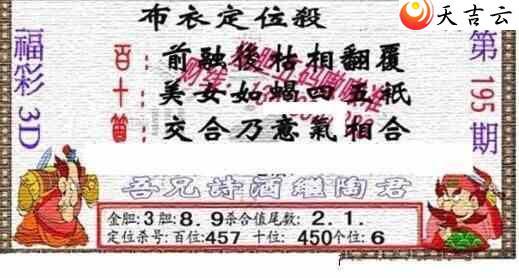 天吉云
布衣定位殺
福彩3D
第195期
百：前融後枯相翻覆
十：美女如蝎四五祇
笛：交合乃意氣相合
吾兄诗酒繼陶君
金胆:3胆:8.9杀合值尾数:2.1.
定位杀号:百位:457 十位:450个位:6